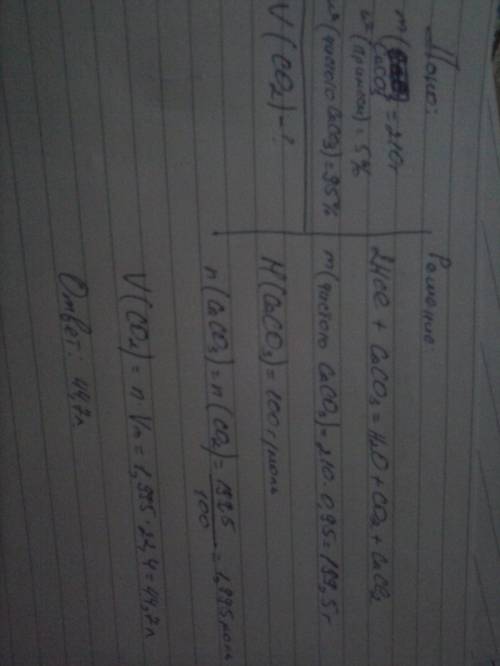 Дано:
m(CaCO₃) = 210г
ω(примеси) = 5%
ω(чистого CaCO₃) = 95%
V(CO₂) - ?
Решение:
2HCl + CaCO₃ = H₂O + CO₂ + CaCl₂
m(чистого CaCO₃) = 210 · 0,95 = 199,5г
M(CaCO₃) = 100г/моль
n(CaCO₃) = n(CO₂) = 199,5/100 = 1,995моль
V(CO₂) = n · Vm = 1,995 · 22,4 = 44,7л
Ответ: 44,7л